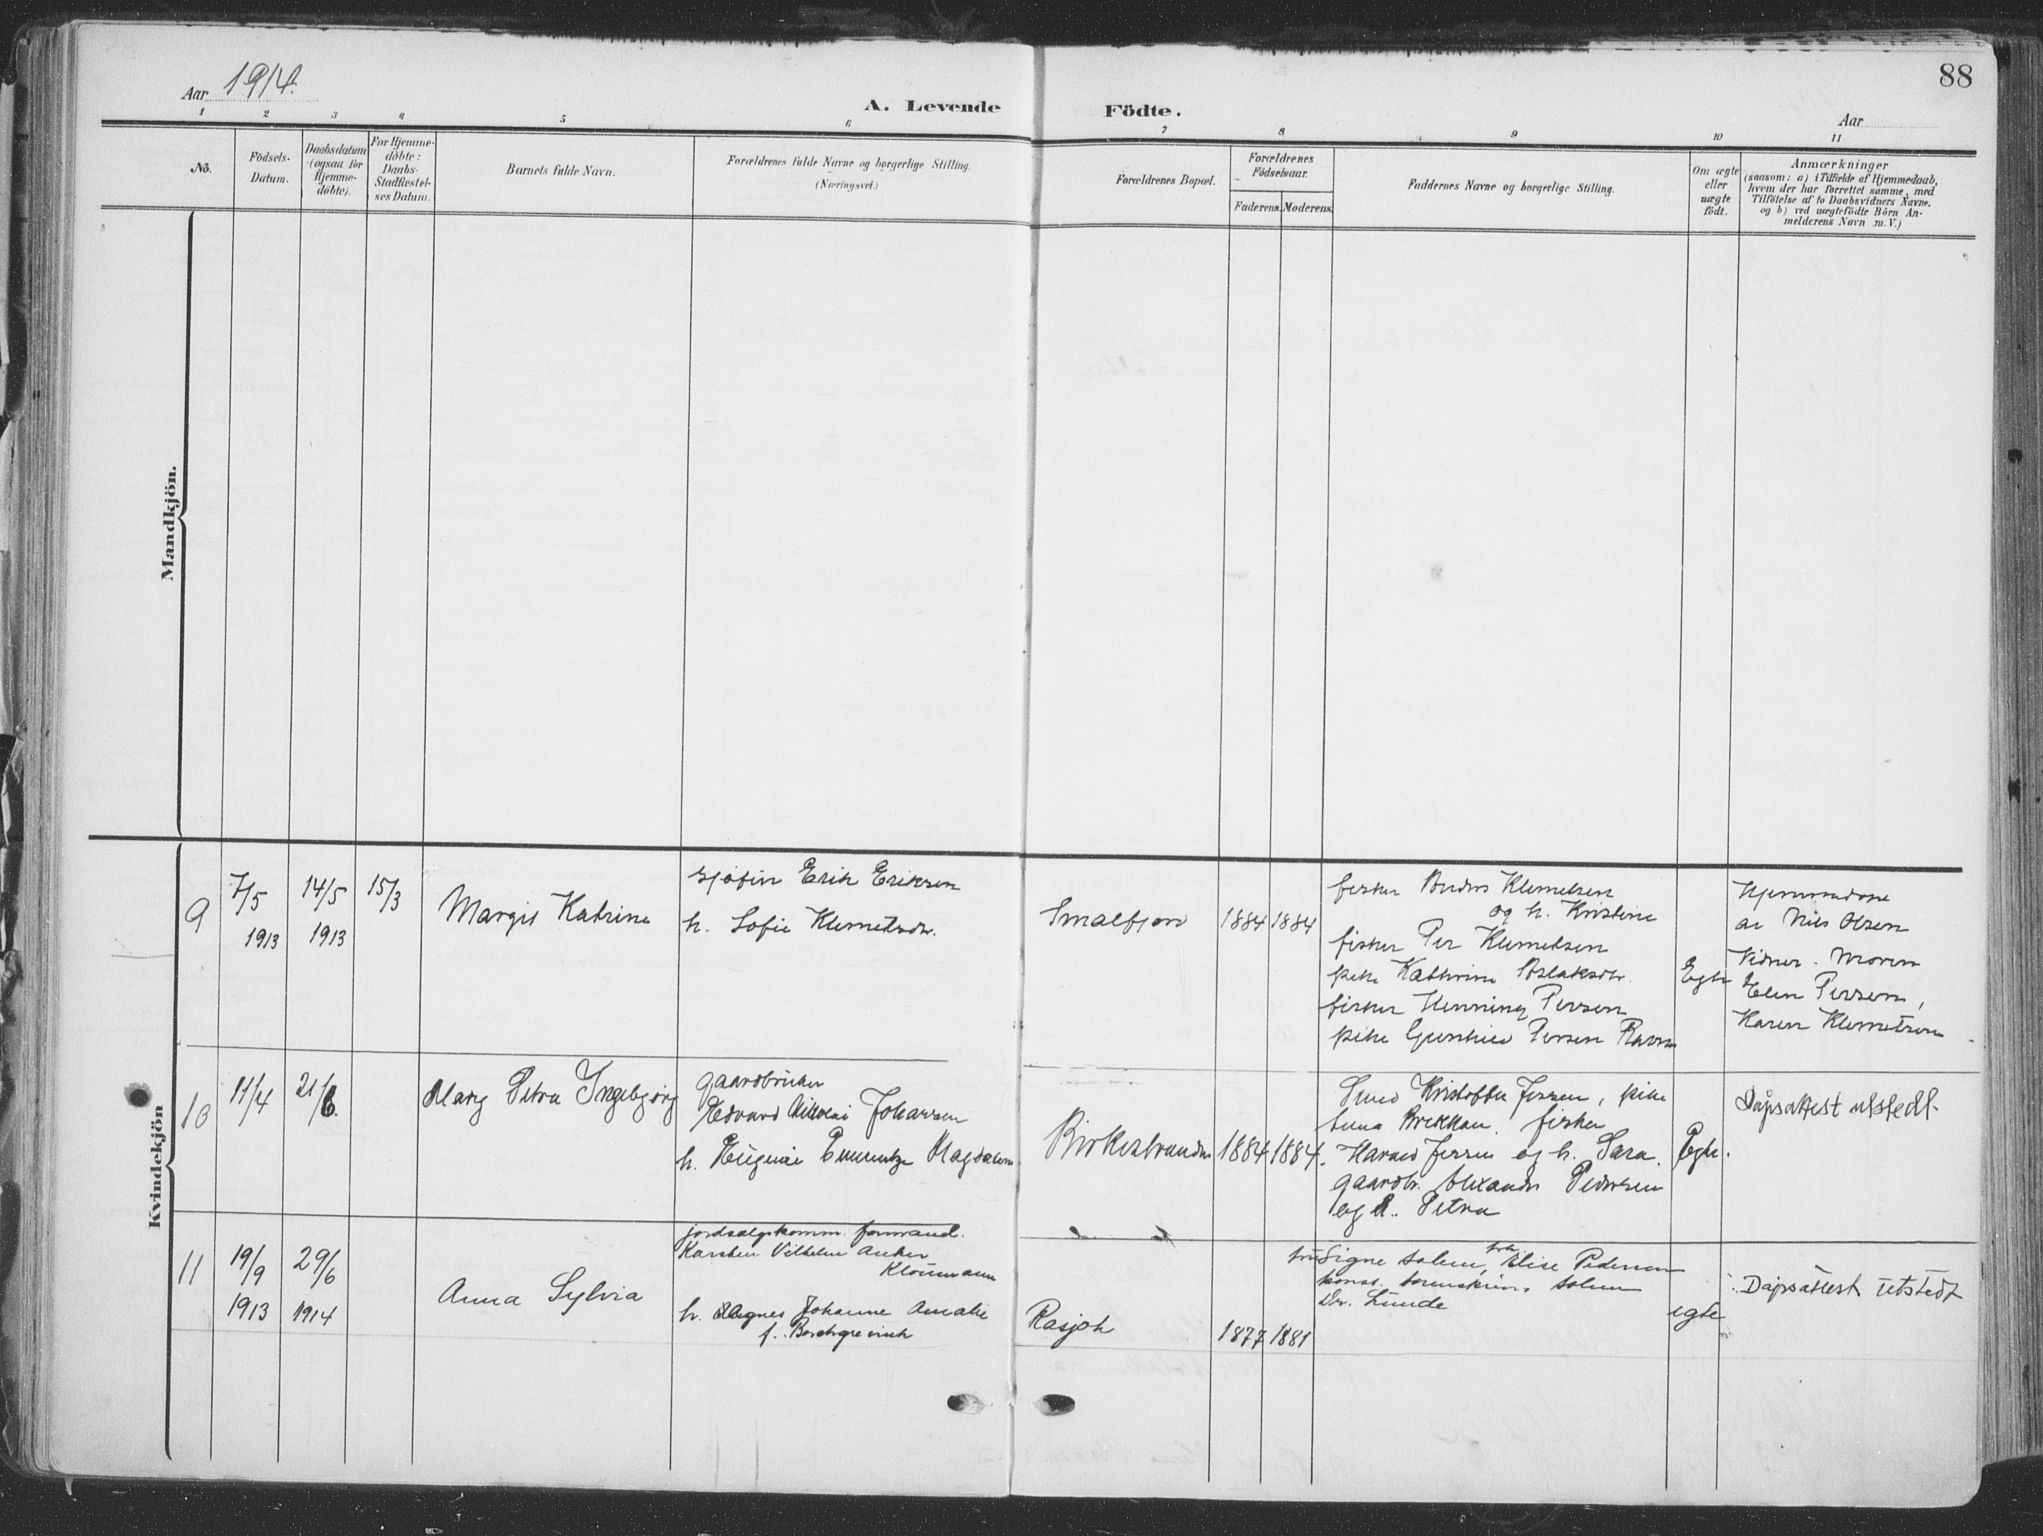 Aar 1914.
A. Levende Födte.
88
Aar
1 2 3 4 5 6 7 8 9 10 11
No.
Födsels-Datum.
Daabsdatum (ogsaa for Hjemme-döbte).
For Hjemme-döbte: Daabs-Stadfæstel-ses Datum.
Barnets fulde Navn.
Forældrenes fulde Navne og borgerlige Stilling.
(Næringsvei.)
Forældrenes Bopæl.
Forældrenes Födselsaar.
Faderens. Moderens.
Faddernes Navne og borgerlige Stilling.
Om ægte eller uægte födt.
Anmærkninger
(saasom: a) i Tilfælde af Hjemmedaab,
hvem der har forrettet samme, med
Tilföielse af to Daabsvidners Navne.
og b) ved uægtefödte Börn An-
melderens Navn m.V.)
Mandkjön.
Kvindekjön
9
7/5 1913
14/5 1913
15/3
Margit Katrine
Erik Eriksen
h. Sofie Klemetsdtr.
Smalfjord
1884 1884
fisker Anders Klemetsen
og h. Kristine
fisker Per Klemetsen
pike Kathrine Aslaksdtr.
fisker Henning Persen
pike Persen Ravna
Egte
av Nils Olsen
Vidner. Moren
Elen Persen,
Karen Klemetsen
10
11/4
21/6.
Mary Petra Ingebjørg
gaardbruker
Edvard Nikolai Johansen
h. Magdalene
Birkestranden
1884 1884.
Kristoffer Jessen, pike
Anna Brekkan. fisker
Harald Jessen og h. Sara.
gaardbr. Alexander Pedersen
og h. Petra
Egte.
Dåpsattest utstedt.
11
19/9 1913
29/6 1914
Anna Sylvia
jordsalgskomm. formand.
Karsten Vilhelm Anker
Kloumann
h. Agnes Johanne Amalie
f. Borchgrevink
Rasjok
1877 1881
fru Signe Solem, frk. Elise Pedersen
konst. sorenskriv. Solem
Dr. Lunde
egte
Dåpsattest utstedt